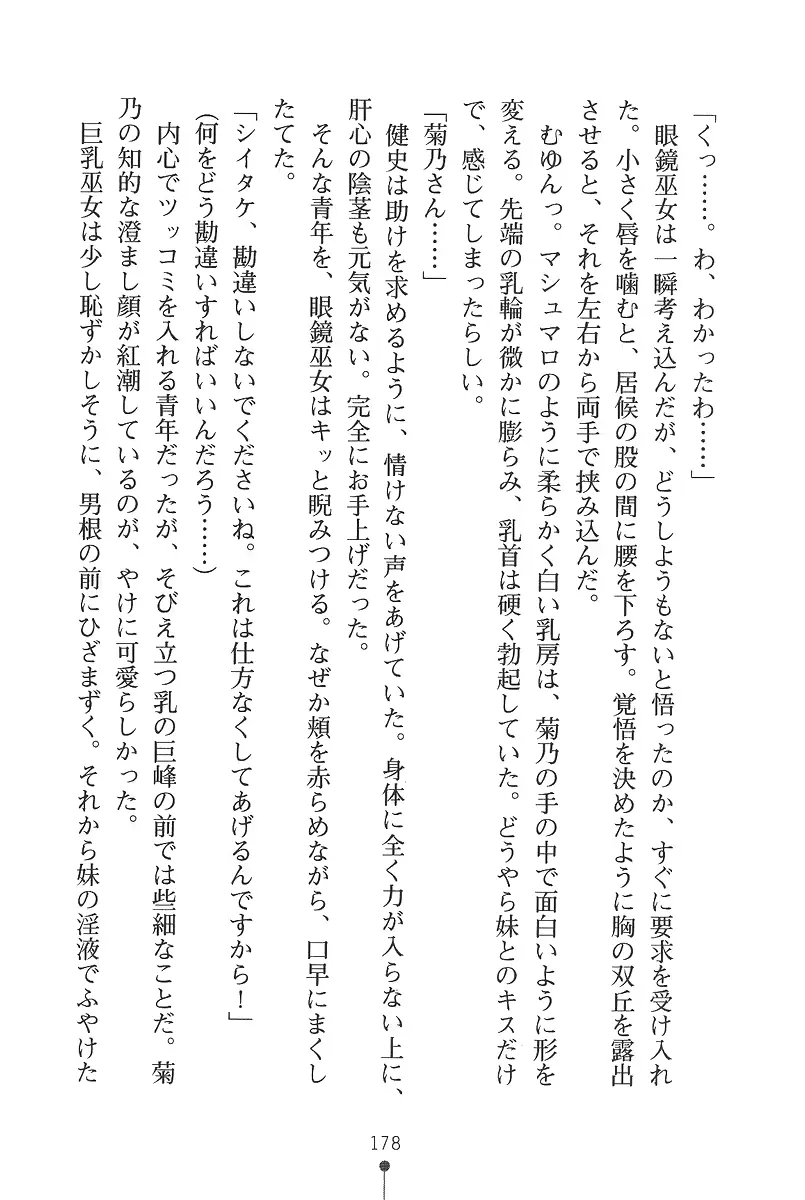 「くっ……。わ、わかったわ……」
眼鏡巫女は一瞬考え込んだが、どうしようもないと悟ったのか、すぐに要求を受け入れ
た。小さく唇を噛むと、居候の股の間に腰を下ろす。覚悟を決めたように胸の双丘を露出
させると、それを左右から両手で挟み込んだ。
むゆんっ。マシュマロのように柔らかく白い乳房は、菊乃の手の中で面白いように形を
変える。先端の乳輪が微かに膨らみ、乳首は硬く勃起していた。どうやら妹とのキスだけ
で、感じてしまったらしい。
「菊乃さん……」
健史は助けを求めるように、情けない声をあげていた。身体に全く力が入らない上に、
肝心の陰茎も元気がない。完全にお手上げだった。
そんな青年を、眼鏡巫女はキッと睨みつける。なぜか頬を赤らめながら、口早にまくし
たてた。
「シイタケ、勘違いしないでくださいね。これは仕方なくしてあげるんですから！」
(何をどう勘違いすればいいんだろう……)
内心でツッコミを入れる青年だったが、そびえ立つ乳の巨峰の前では些細なことだ。菊
乃の知的な澄まし顔が紅潮しているのが、やけに可愛らしかった。
巨乳巫女は少し恥ずかしそうに、男根の前にひざまずく。それから妹の淫液でふやけた
178